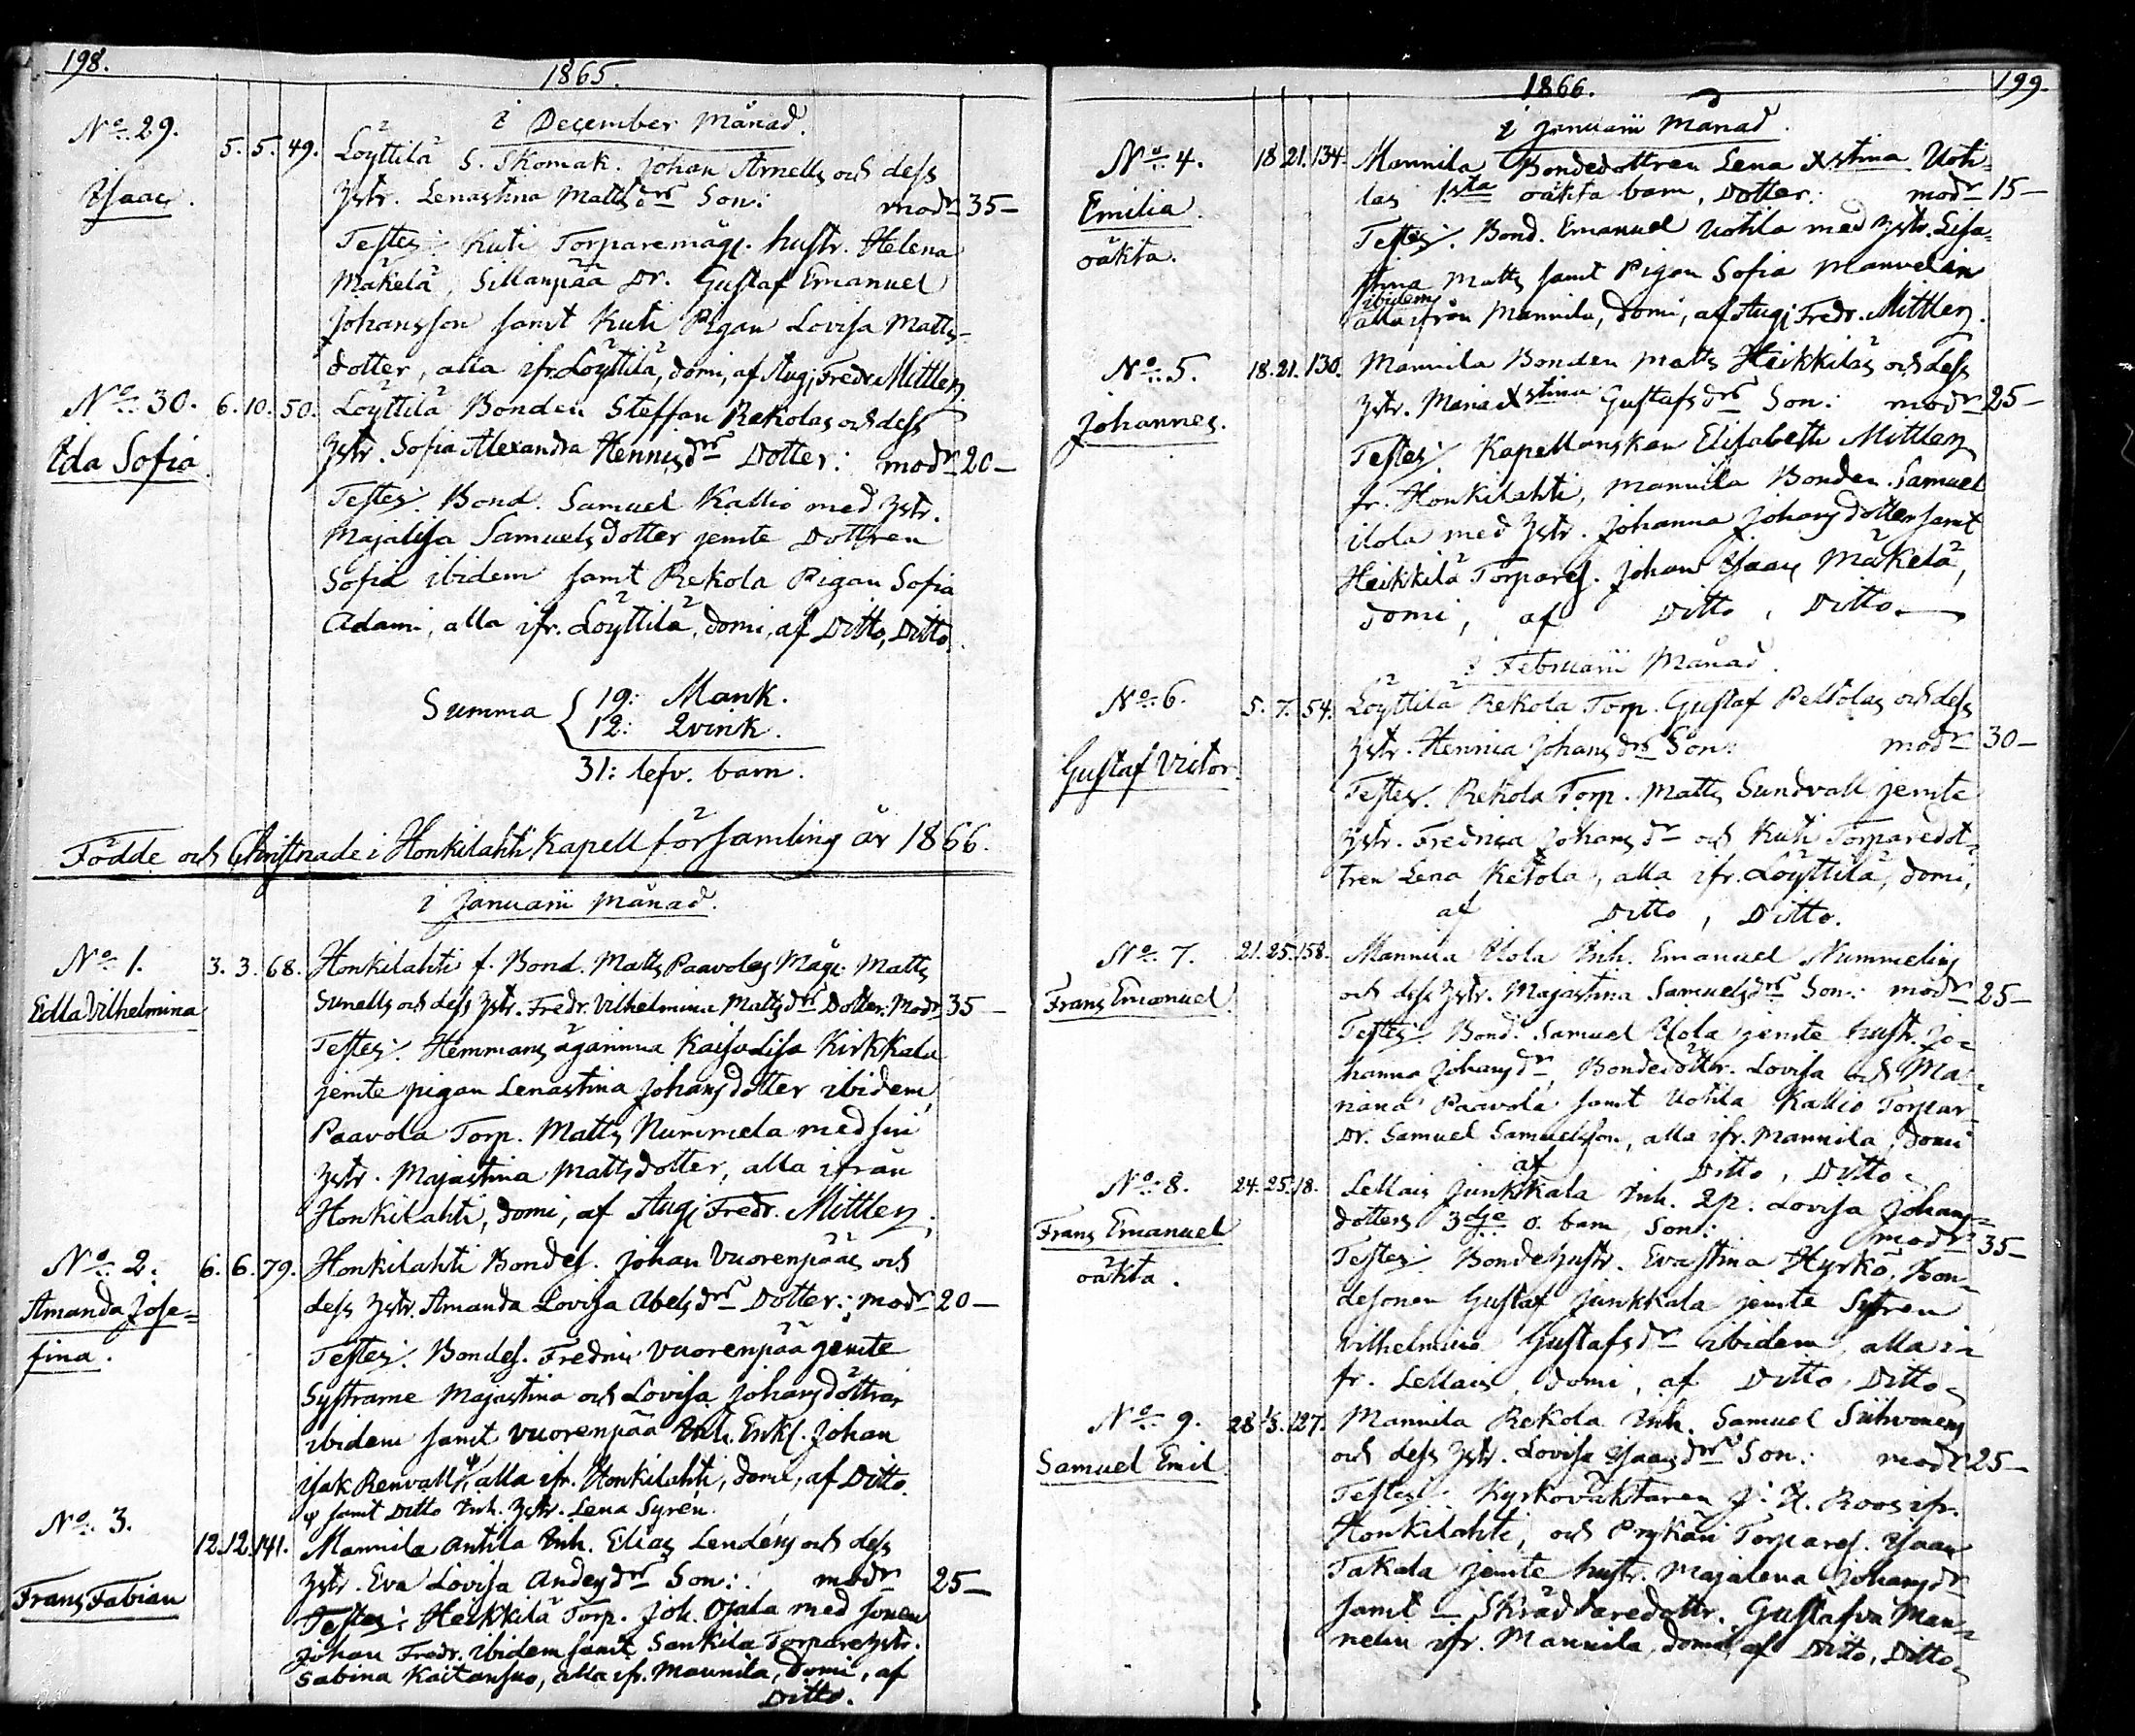 198.
1865.
i December månad.
No. 29. 5. 5. 49. Löyttilä S. Skomak. Johan Arnells och dess
Isaac. hstr. Lenastina Mattsdrs Son: modr 35–
Testes: Kuti Torparemåg. hustr. Helena
Mäkelä, Sillanpää Dr. Gustaf Emanuel
Johansson samt Kuti Pigan Lovisa Matts-
dotter, alla ifr. Löyttilä, domi, af Aug; Fredr. Mittler.
No. 30. 6. 10. 50. Löyttilä Bonden Steffan Rekolas och dess
Ida Sofia. hstr. Sofia Alexandra Hennisdrs Dotter: modr 20–
Testes: Bond. Samuel Kallio med hstr.
Majalisa Samuelsdotter jemte Dottren
Sofia ibidem samt Rekola Pigan Sofia
Adami, alla ifr. Löyttilä, domi, af Ditto, Ditto.
Summa { 19: Mank.
12: Qvink.
31: lefv. barn.
Födde och Christnade i Honkilahti Kapell församling år 1866.
i Januarii månad.
No. 1. 3. 3. 68. Honkilahti f. Bond. Matts Paavolas Måg. Matts
Edla Vilhelmina Sunells och dess hstr. Fredr. Vilhelmina Mattsdrs Dotter: Modr 35–
Testes: Hemmans ägarinna Kaisalisa Kirkkala
jemte pigan Lenastina Johansdotter ibidem,
Paavola Torp. Matts Nummela med sin
hstr. Majastina Mattsdotter, alla ifrån
Honkilahti, domi, af Aug; Fredr. Mittler.
No. 2. 6. 6. 79. Honkilahti Bondes. Johan Vuorenpääs och
Amanda Jose= dess hstr. Amanda Lovisa Abelsdrs Dotter: modr 20–
fina. Testes: Bondes. Fredric Vuorenpää jemte
Systrarne Majastina och Lovisa Johansdöttrar
ibidem samt Vuorenpää Inh. Enkl. Johan
Isak Renvall φ, alla ifr. Honkilahti, domi, af Ditto.
φ samt Ditto Inh. hstr. Lena Syrén.
No. 3. 12. 12. 141. Mannila Antila Inh. Elias Lendens och dess
Frans Fabian hstr. Eva Lovisa Andersdrs Son: modr 25–
Testes: Heikkilä Torp. Joh. Ojala med sonen
Johan Fredr. ibidem samt Sankila Torparehstr.
Sabina Kaitansuo, alla ifr. Mannila, domi, af
Ditto.
199.
1866.
i Januarii Månad.
No. 4. 18 21. 134. Mannila Bondedottren Lena Xstina Uoti-
Emilia. las 1sta oäkta barn, Dotter: modr 15–
oäkta. Testes: Bond. Emanuel Uotila med hstr. Lisa-
stina Matts samt Pigan Sofia Manuelin
ibidem
alla ifrån Mannila, domi, af Aug; Fredr. Mittler.
No. 5. 18. 21. 130. Mannila Bonden Matts Heikkiläs och dess
Johannes. hstr. Maria Xstina Gustafsdrs Son: modr 25–
Testes: Kapellanskan Elisabeth Mittler
fr. Honkilahti, Mannila Bonden Samuel
Ilola med hstr. Johanna Johansdotter samt
Heikkilä Torpares. Johan Isaac Mäkelä,
domi, af Ditto, Ditto
i Februarii Månad.
No. 6. 5. 7. 54. Löyttilä Rekola Torp. Gustaf Peltolas och dess
Gustaf Victor. hstr. Henrica Johansdrs Son: modr 30–
Testes: Rekola Torp. Matts Sundvall jemte
hstr. Fredrica Johansdr och Kuti Torparedot-
tren Lena Ketola, alla ifr. Löyttilä, domi,
af Ditto, Ditto.
No. 7. 21. 25. 158. Mannila Ilola Inh. Emanuel Nummelins
Frans Emanuel. och dess hstr. Majastina Samuelsdrs Son: modr 25–
Testes: Bond. Samuel Ilola jemte hustr. Jo-
hanna Johansdr, Bondedöttr. Lovisa och Ma-
riana Paavola samt Uotila Kallio Torpar
Dr. Samuel Samuelsson, alla ifr. Mannila, domi
af Ditto, Ditto
No. 8. 24. 25. 18. Lellais Junkkala Inh. Qp. Lovisa Johans-
Frans Emanuel dotters 3dje o. barn, Son: modr 35–
oäkta. Testes: Bondehustr. Evastina Hyrkö, Bon-
desonen Gustaf Junkkala jemte Systren
Vilhelmina Gustafsdr ibidem, alla i-
fr. Lellais, domi, af Ditto, Ditto
No. 9. 28 1/3. 127. Mannila Rekola Inh. Samuel Sihvonens
Samuel Emil och dess hstr. Lovisa Isaacsdrs Son: modr 25–
Testes: Kyrkoväktaren J: H. Roos ifr.
Honkilahti, och Prykäri Torpares. Isaac
Takala jemte hustr. Majalena Johansdr
samt Skräddaredottr. Gustafva Man-
nelin ifr. Mannila, domi, af Ditto, Ditto